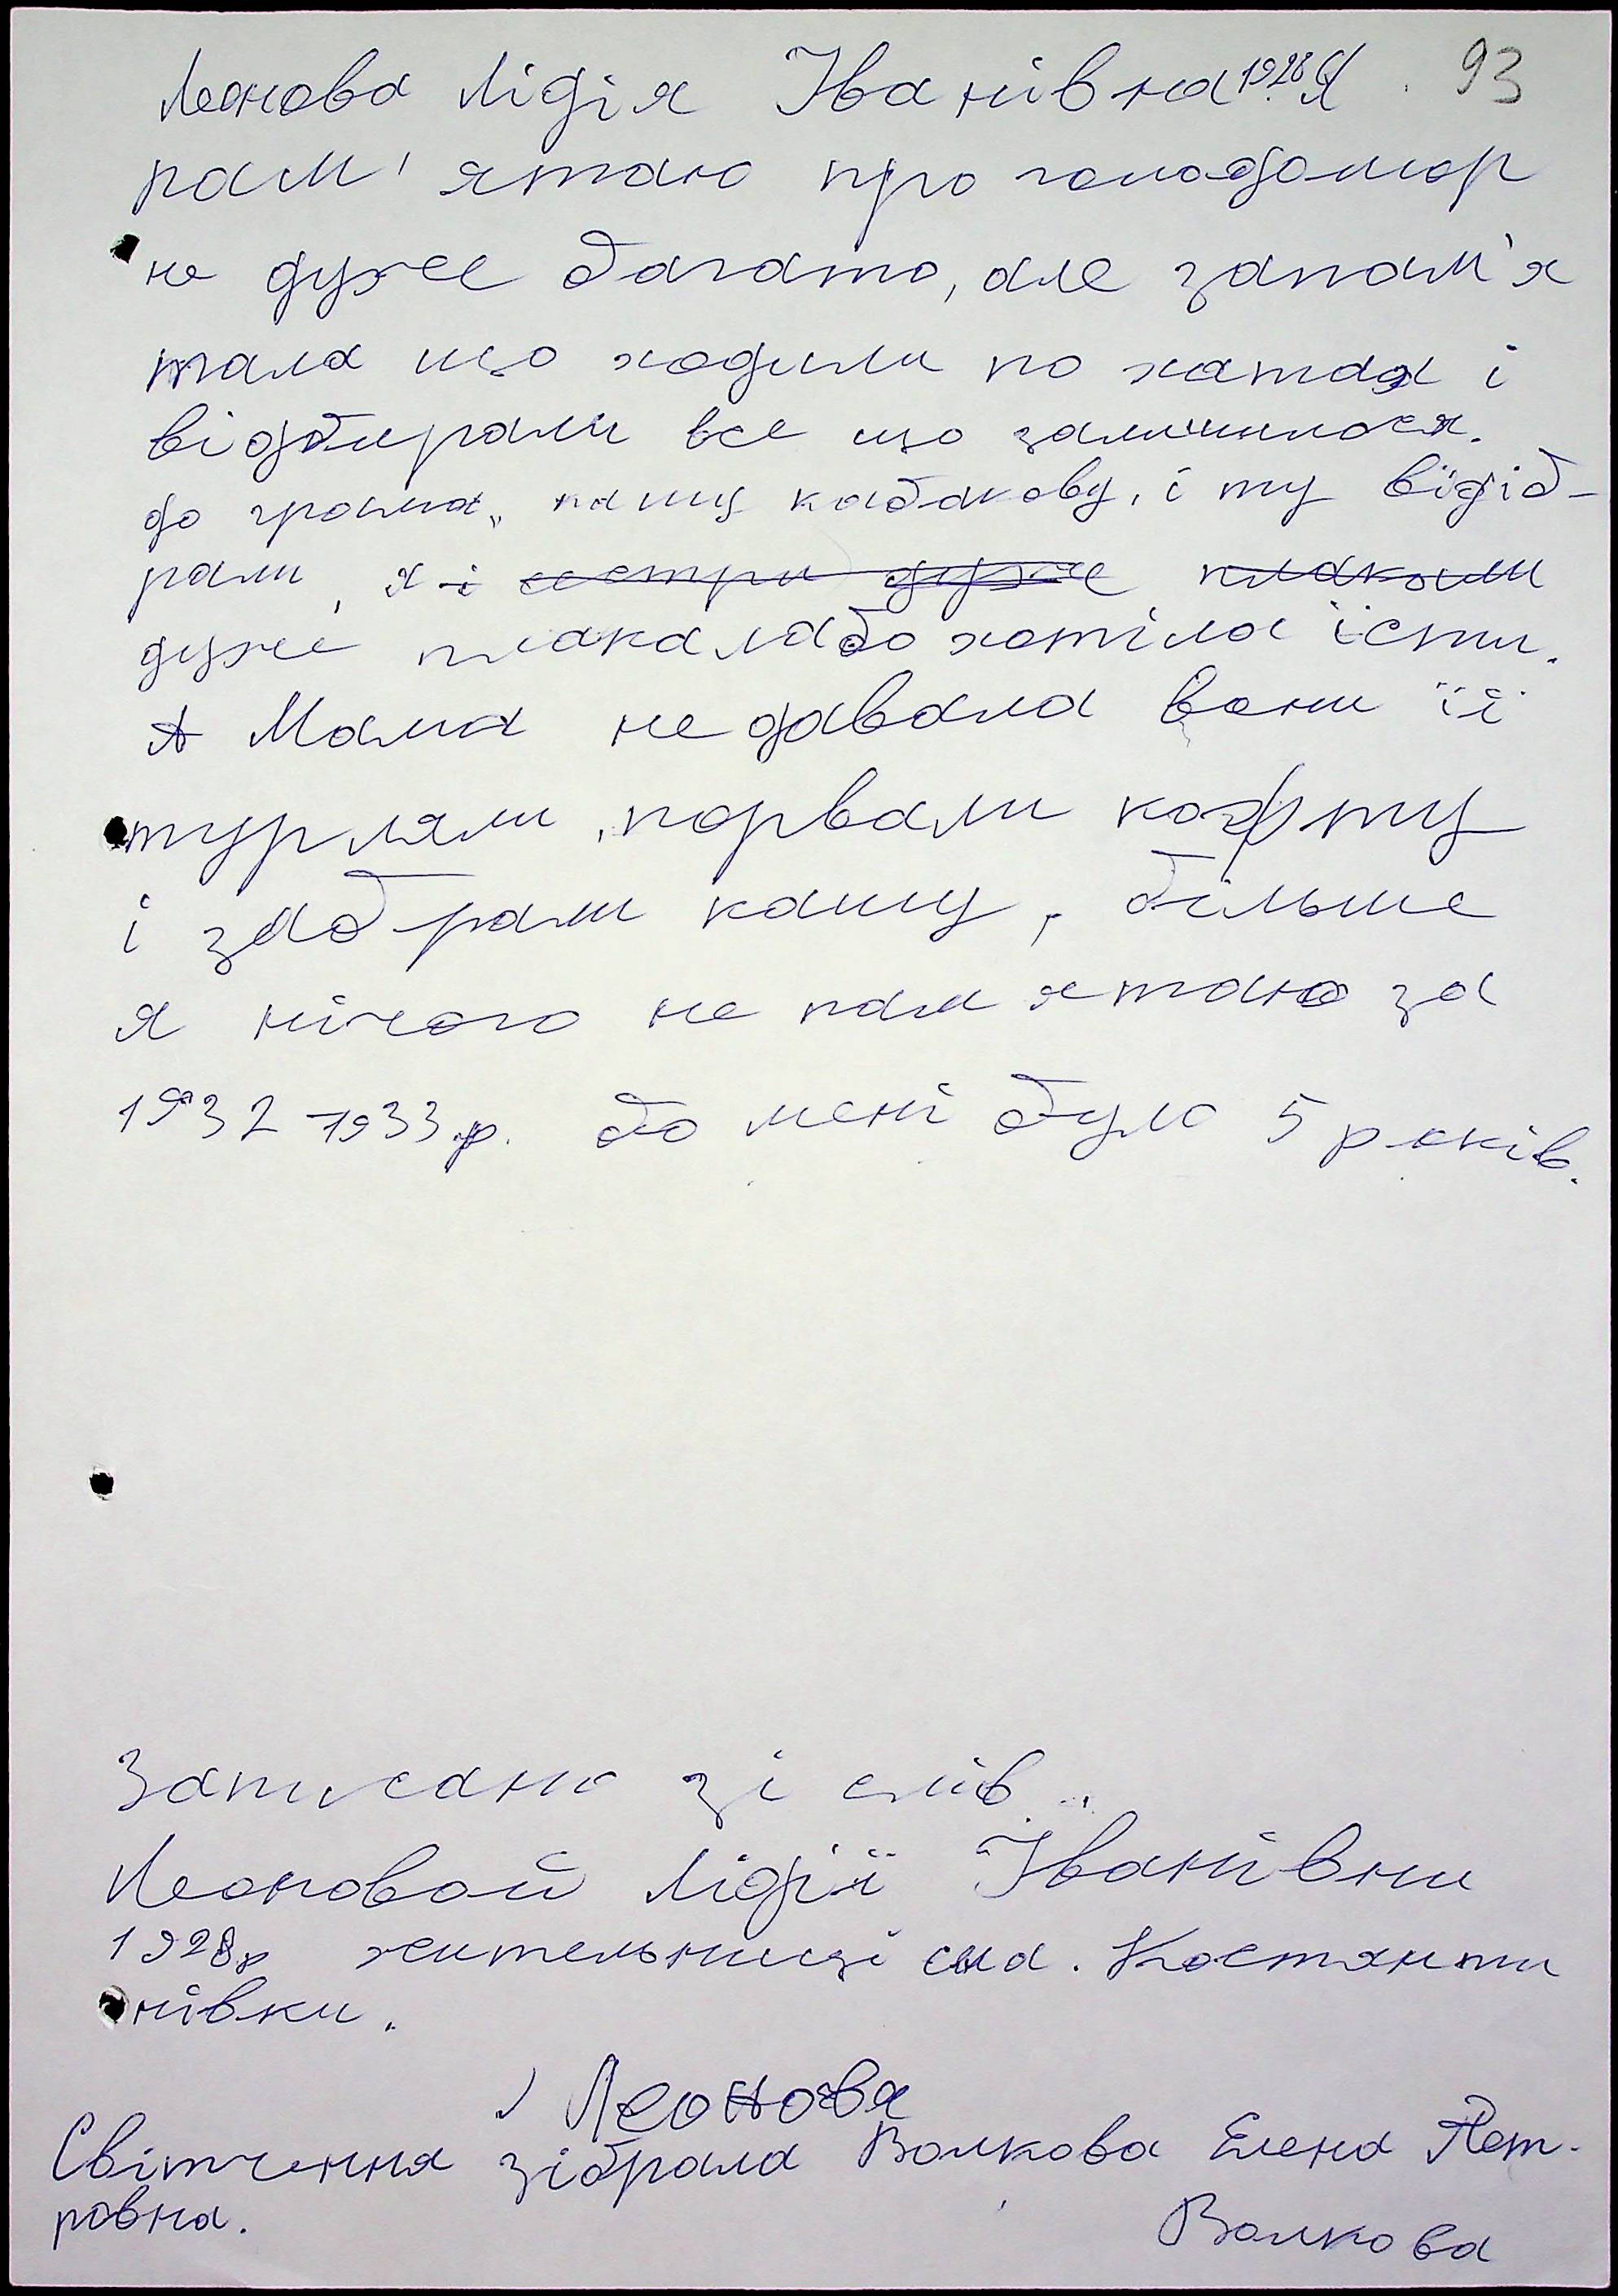 Леонова Лідія Іванівна 1928 Я 93
пам'ятаю про голодомор
не дуже багато, але запам'я
тала що ходили по хатах і
відбирали все що залишилося.
до грама, кашу кабакову, і ту відіб-
рали, я і сестри дуже плакали
дуже плакала бо хотіла їсти.
А Мама не давала вони її
турляли, порвали кофту
і забрали кашу, більше
я нічого не пам ятаю за
1932-1933р. бо мені було 5 років.
Записано зі слів
Леоновой Лідії Іванівни
1928р жительниці села. Костянти
нівки.
Леонова
Світчення зібрала Волкова Елена Пет-
ровна.
Волкова